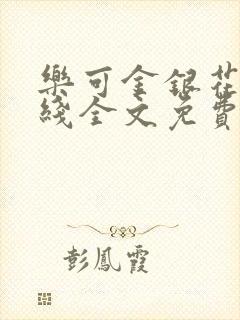 樂可金銀花
綫全文免費
彭鳳霞